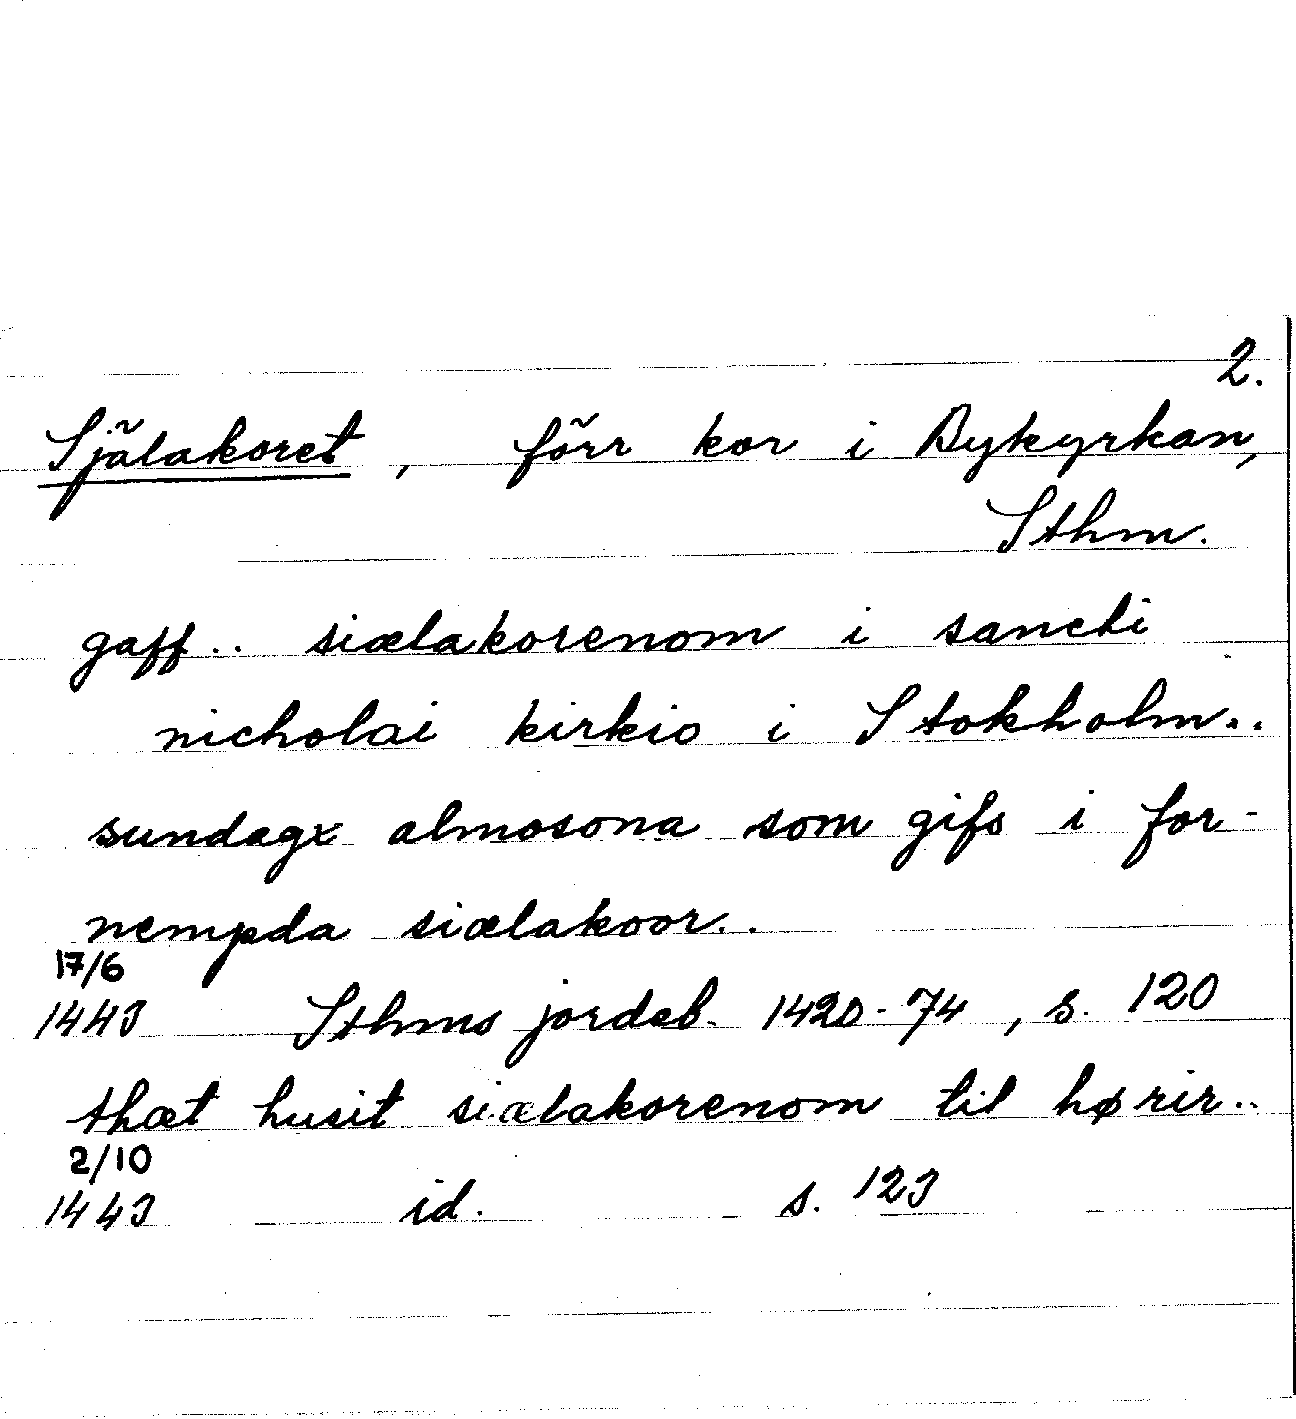 2.
Själakoret, förr kor i Bykyrkan,
Sthm.
gaff.. siælakorenom i sancti
nicholai kirkio i Stokholm..
sundagx almosona som gifs i for-
nempda siælakoor..
17/6
1443 Sthms jordeb. 1420-74, s. 120
thæt husit siælakorenom til hørir..
2/10
1443 id. s. 123